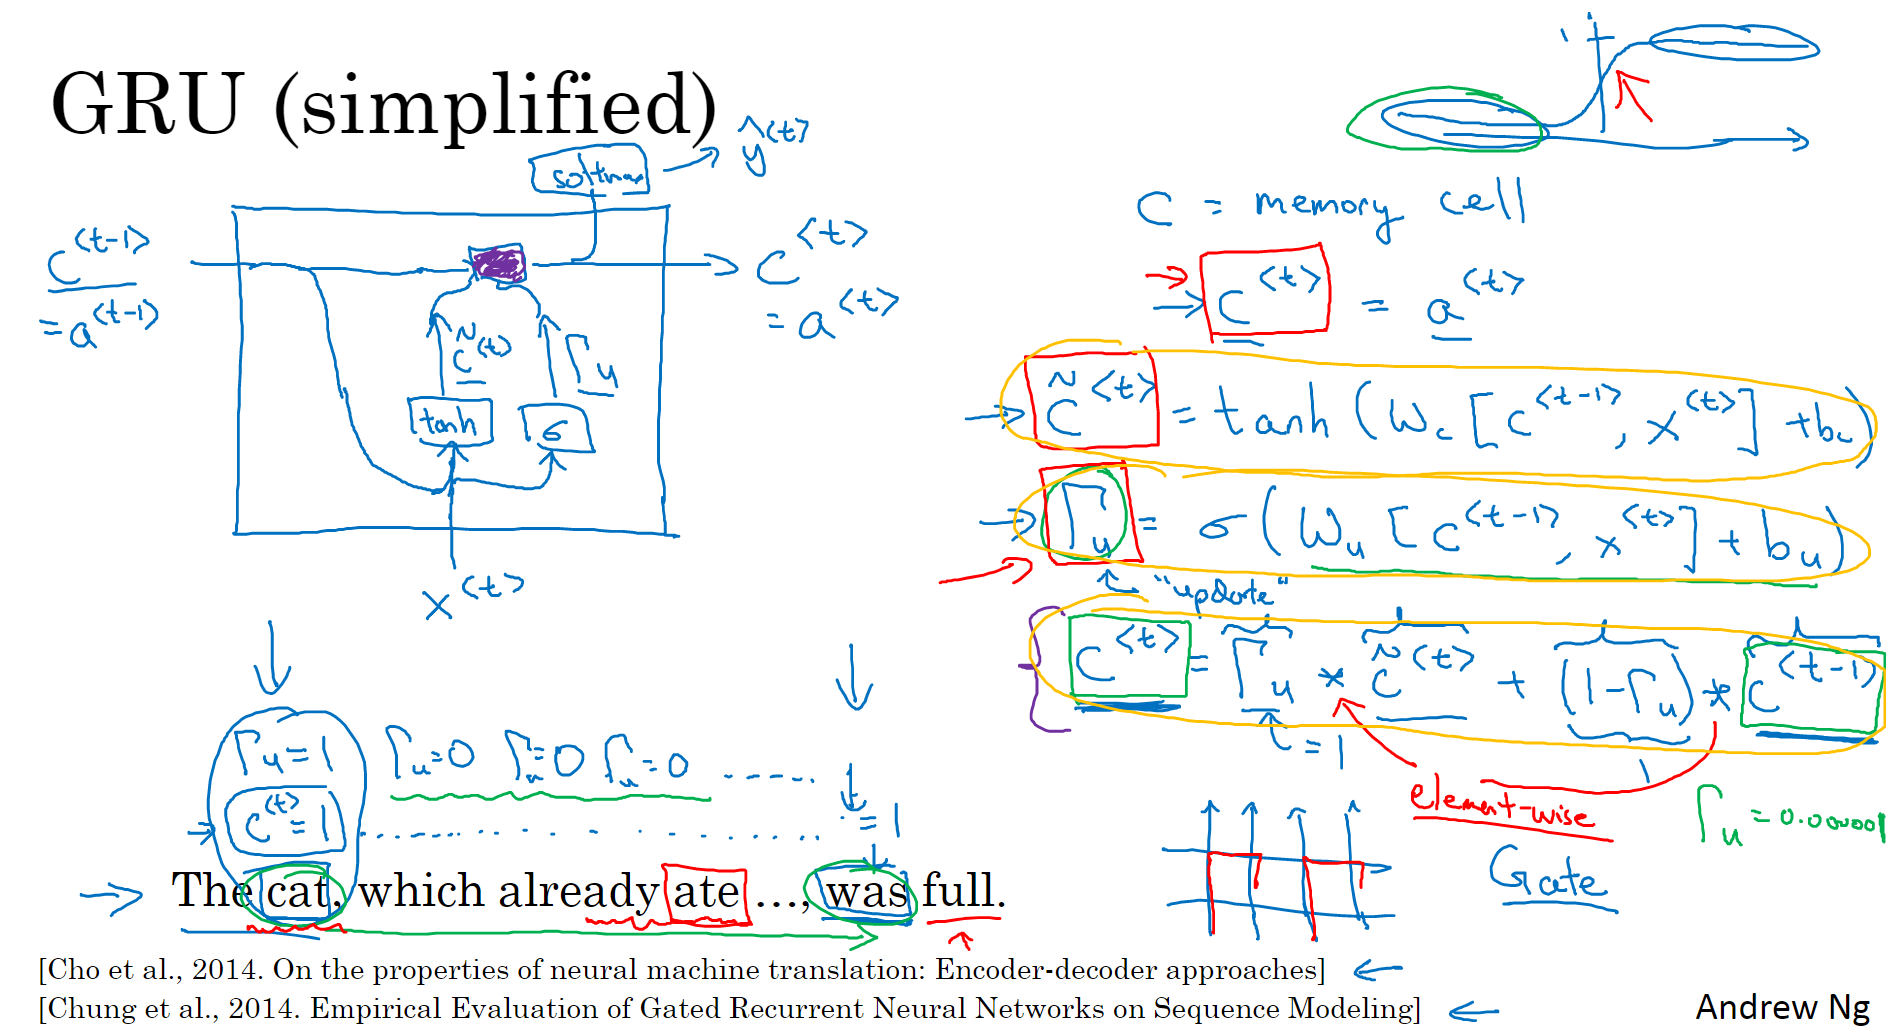 GRU (simplified)
1
softmax → ŷ<t>
c<t-1> = a<t-1>
c<t> = a<t>
c̃<t>
Γu
tanh
σ
x<t>
C = memory cell
→ c<t> = a<t>
→ c̃<t> = tanh(Wc[c<t-1>, x<t>] + bc)
→ Γu = σ(Wu[c<t-1>, x<t>] + bu)
"update"
c<t> = Γu * c̃<t> + (1-Γu) * c<t-1>
= 1
element-wise
Γu = 0.000001
Gate
Γu=1 Γu=0 Γu=0 Γu=0 .....
c<t>=1 ......... = 1
The cat, which already ate ..., was full.
[Cho et al., 2014. On the properties of neural machine translation: Encoder-decoder approaches] ←
[Chung et al., 2014. Empirical Evaluation of Gated Recurrent Neural Networks on Sequence Modeling] ←
Andrew Ng